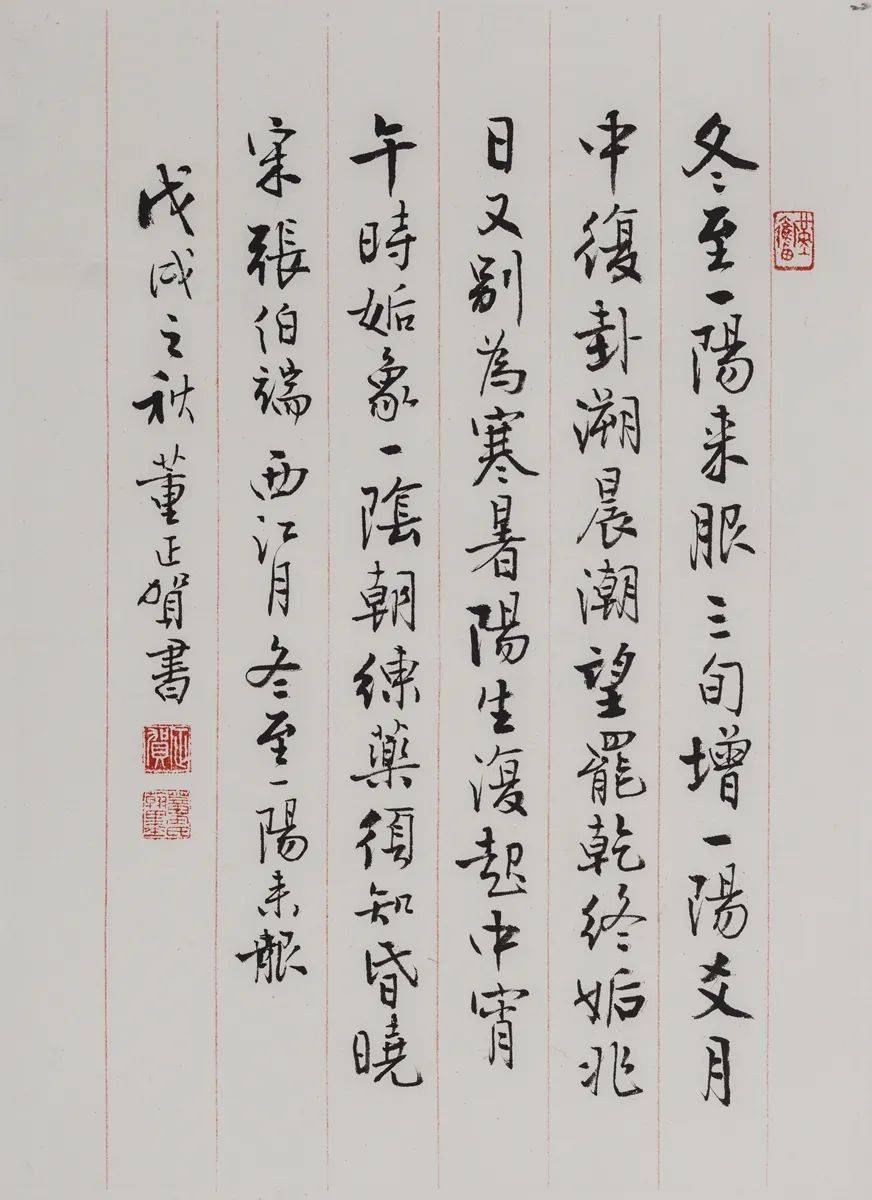 冬至一陽来服三旬增一陽爻月
中復卦溯晨潮望罷乾終姤兆
日又别為寒暑陽生復起中宵
午時姤象一陰朝練藥須知昏曉
宋張伯端 西江月 冬至一陽来服
戊戌之秋 董正賀書
正賀
董氏翰墨